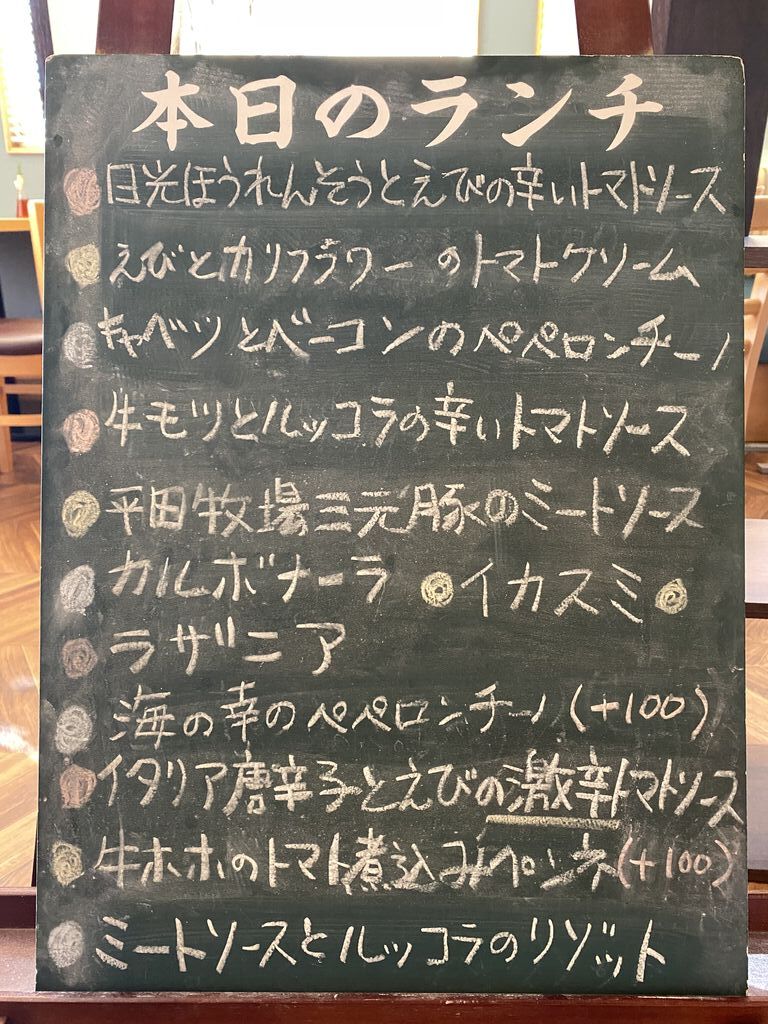 本日のランチ
日光ほうれんそうとえびの辛いトマトソース
えびとカリフラワーのトマトクリーム
キャベツとベーコンのペペロンチーノ
牛モツとルッコラの辛いトマトソース
平田牧場三元豚のミートソース
カルボナーラ ●イカスミ●
ラザニア
海の幸のペペロンチーノ(+100)
イタリア唐辛子とえびの激辛トマトソース
牛ホホのトマト煮込みペンネ(+100)
ミートソースとルッコラのリゾット